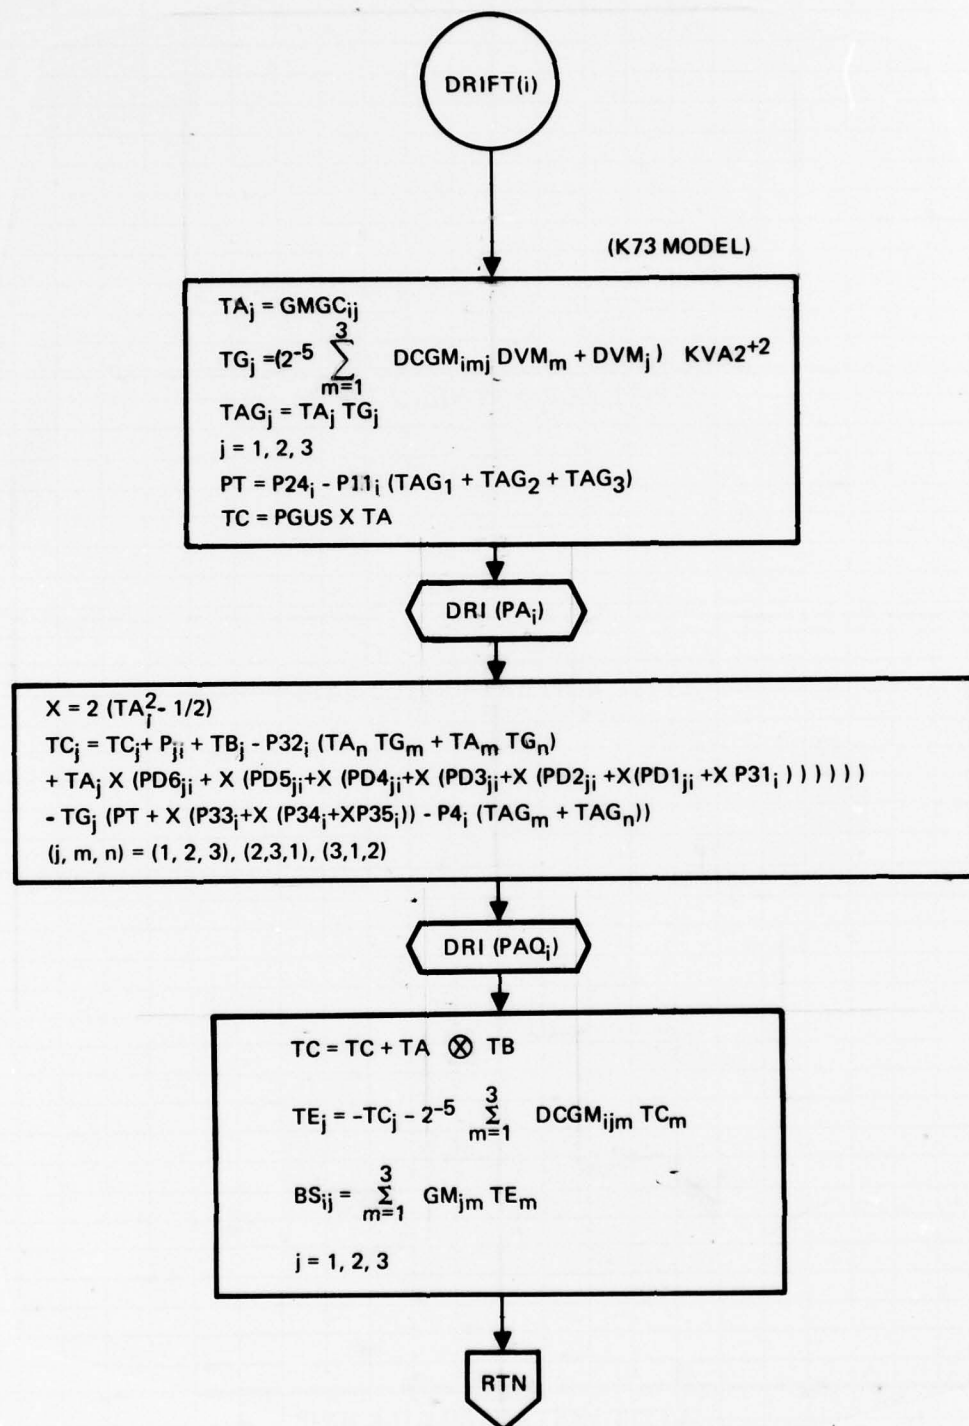 DRIFT(i)
(K73 MODEL)
TA_j = GMGC_ij
TG_j =(2^-5 3∑m=1 DCGM_imj DVM_m + DVM_j) KVA2^+2
TAG_j = TA_j TG_j
j = 1, 2, 3
PT = P24_i - P11_i (TAG_1 + TAG_2 + TAG_3)
TC = PGUS X TA
DRI (PA_i)
X = 2 (TA_i^2 - 1/2)
TC_j = TC_j + P_ji + TB_j - P32_i (TA_n TG_m + TA_m TG_n)
+ TA_j X (PD6_ji + X (PD5_ji+X (PD4_ji+X (PD3_ji+X (PD2_ji +X(PD1_ji +X P31_i ) ) ) ) ) )
- TG_j (PT + X (P33_i+X (P34_i+XP35_i)) - P4_i (TAG_m + TAG_n))
(j, m, n) = (1, 2, 3), (2,3,1), (3,1,2)
DRI (PAQ_i)
TC = TC + TA ⊗ TB
TE_j = -TC_j - 2^-5 3Σm=1 DCGM_ijm TC_m
BS_ij = 3Σm=1 GM_jm TE_m
j = 1, 2, 3
RTN